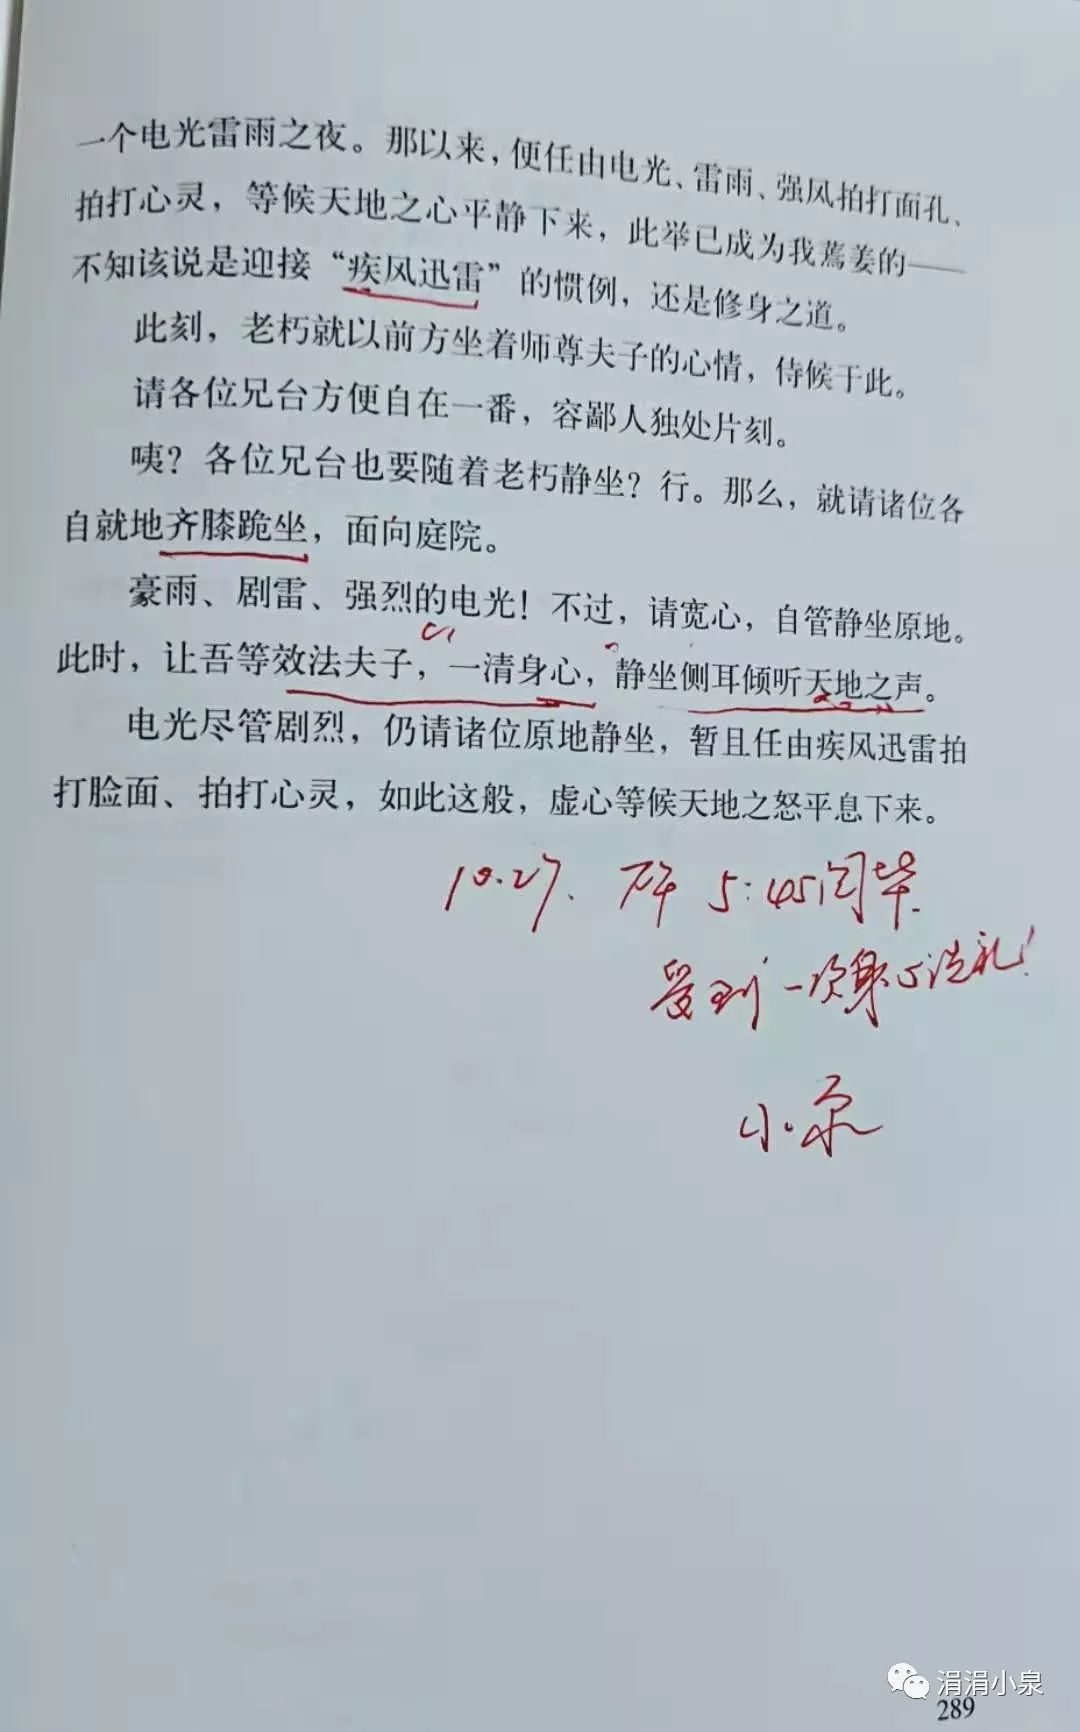 一个电光雷雨之夜。那以来，便任由电光、雷雨、强风拍打面孔、
拍打心灵，等候天地之心平静下来，此举已成为我蔫姜的——
不知该说是迎接“疾风迅雷”的惯例，还是修身之道。
此刻，老朽就以前方坐着师尊夫子的心情，侍候于此。
请各位兄台方便自在一番，容鄙人独处片刻。
咦？各位兄台也要随着老朽静坐？行。那么，就请诸位各
自就地齐膝跪坐，面向庭院。
豪雨、剧雷、强烈的电光！不过，请宽心，自管静坐原地。
此时，让吾等效法夫子，一清身心，静坐侧耳倾听天地之声。
电光尽管剧烈，仍请诸位原地静坐，暂且任由疾风迅雷拍
打脸面、拍打心灵，如此这般，虚心等候天地之怒平息下来。
10.27. 下午 5:45阅毕
受到一次身心洗礼！
小泉
涓涓小泉
289